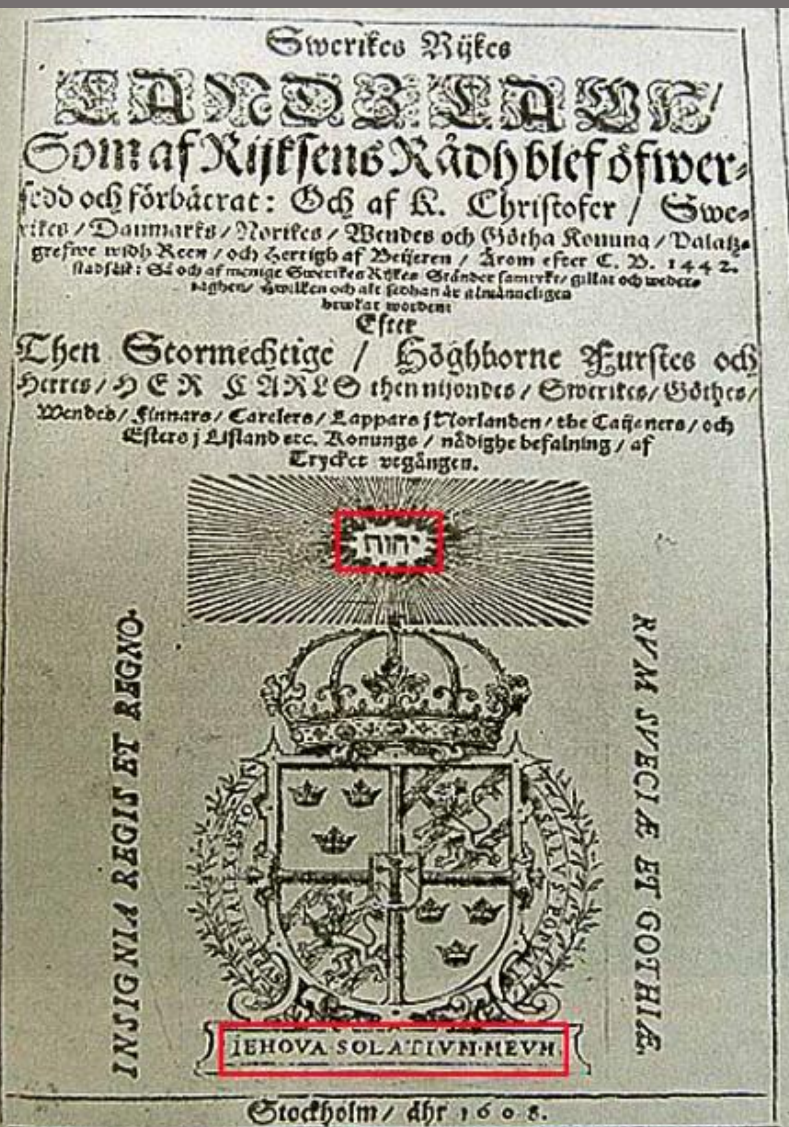 Swerikes Rijkes
LANDZLAGH/
Som af Rijksens Rådh blef öfwer-
sedd och förbätrat: Och af K. Christofer / Swe-
rikes / Danmarks / Norikes / Wendes och Götha Konung / Palatz-
grefwe widh Reen / och Hertigh af Beijeren / Årom efter C. B. 1442.
stadfäst: Så och af menige Swerikes Rijkes Ständer samtykt / gillat och weder-
taghen / hwilken och alt sedhan är almänneligen
brwkat worden:
Efter
Then Stormechtige / Höghborne Furstes och
Herres / HER CARLS then nijondes / Swerikes / Göthes /
Wendes / Finnars / Carelers / Lappars j Norlanden / the Caijaners / och
Esters j Lifland etc. Konungs / nådighe befalning / af
Trycket vtgången.
יהוה
INSIGNIA REGIS ET REGNO-
RVM SVECIÆ ET GOTHIÆ.
SVPREMA LEX ESTO
SALVS POPVLI
IEHOVA SOLATIVM MEVM
Stockholm / åhr 1608.